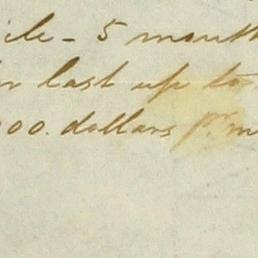 ile - 5 month
r last up to
000. dollars pr. m